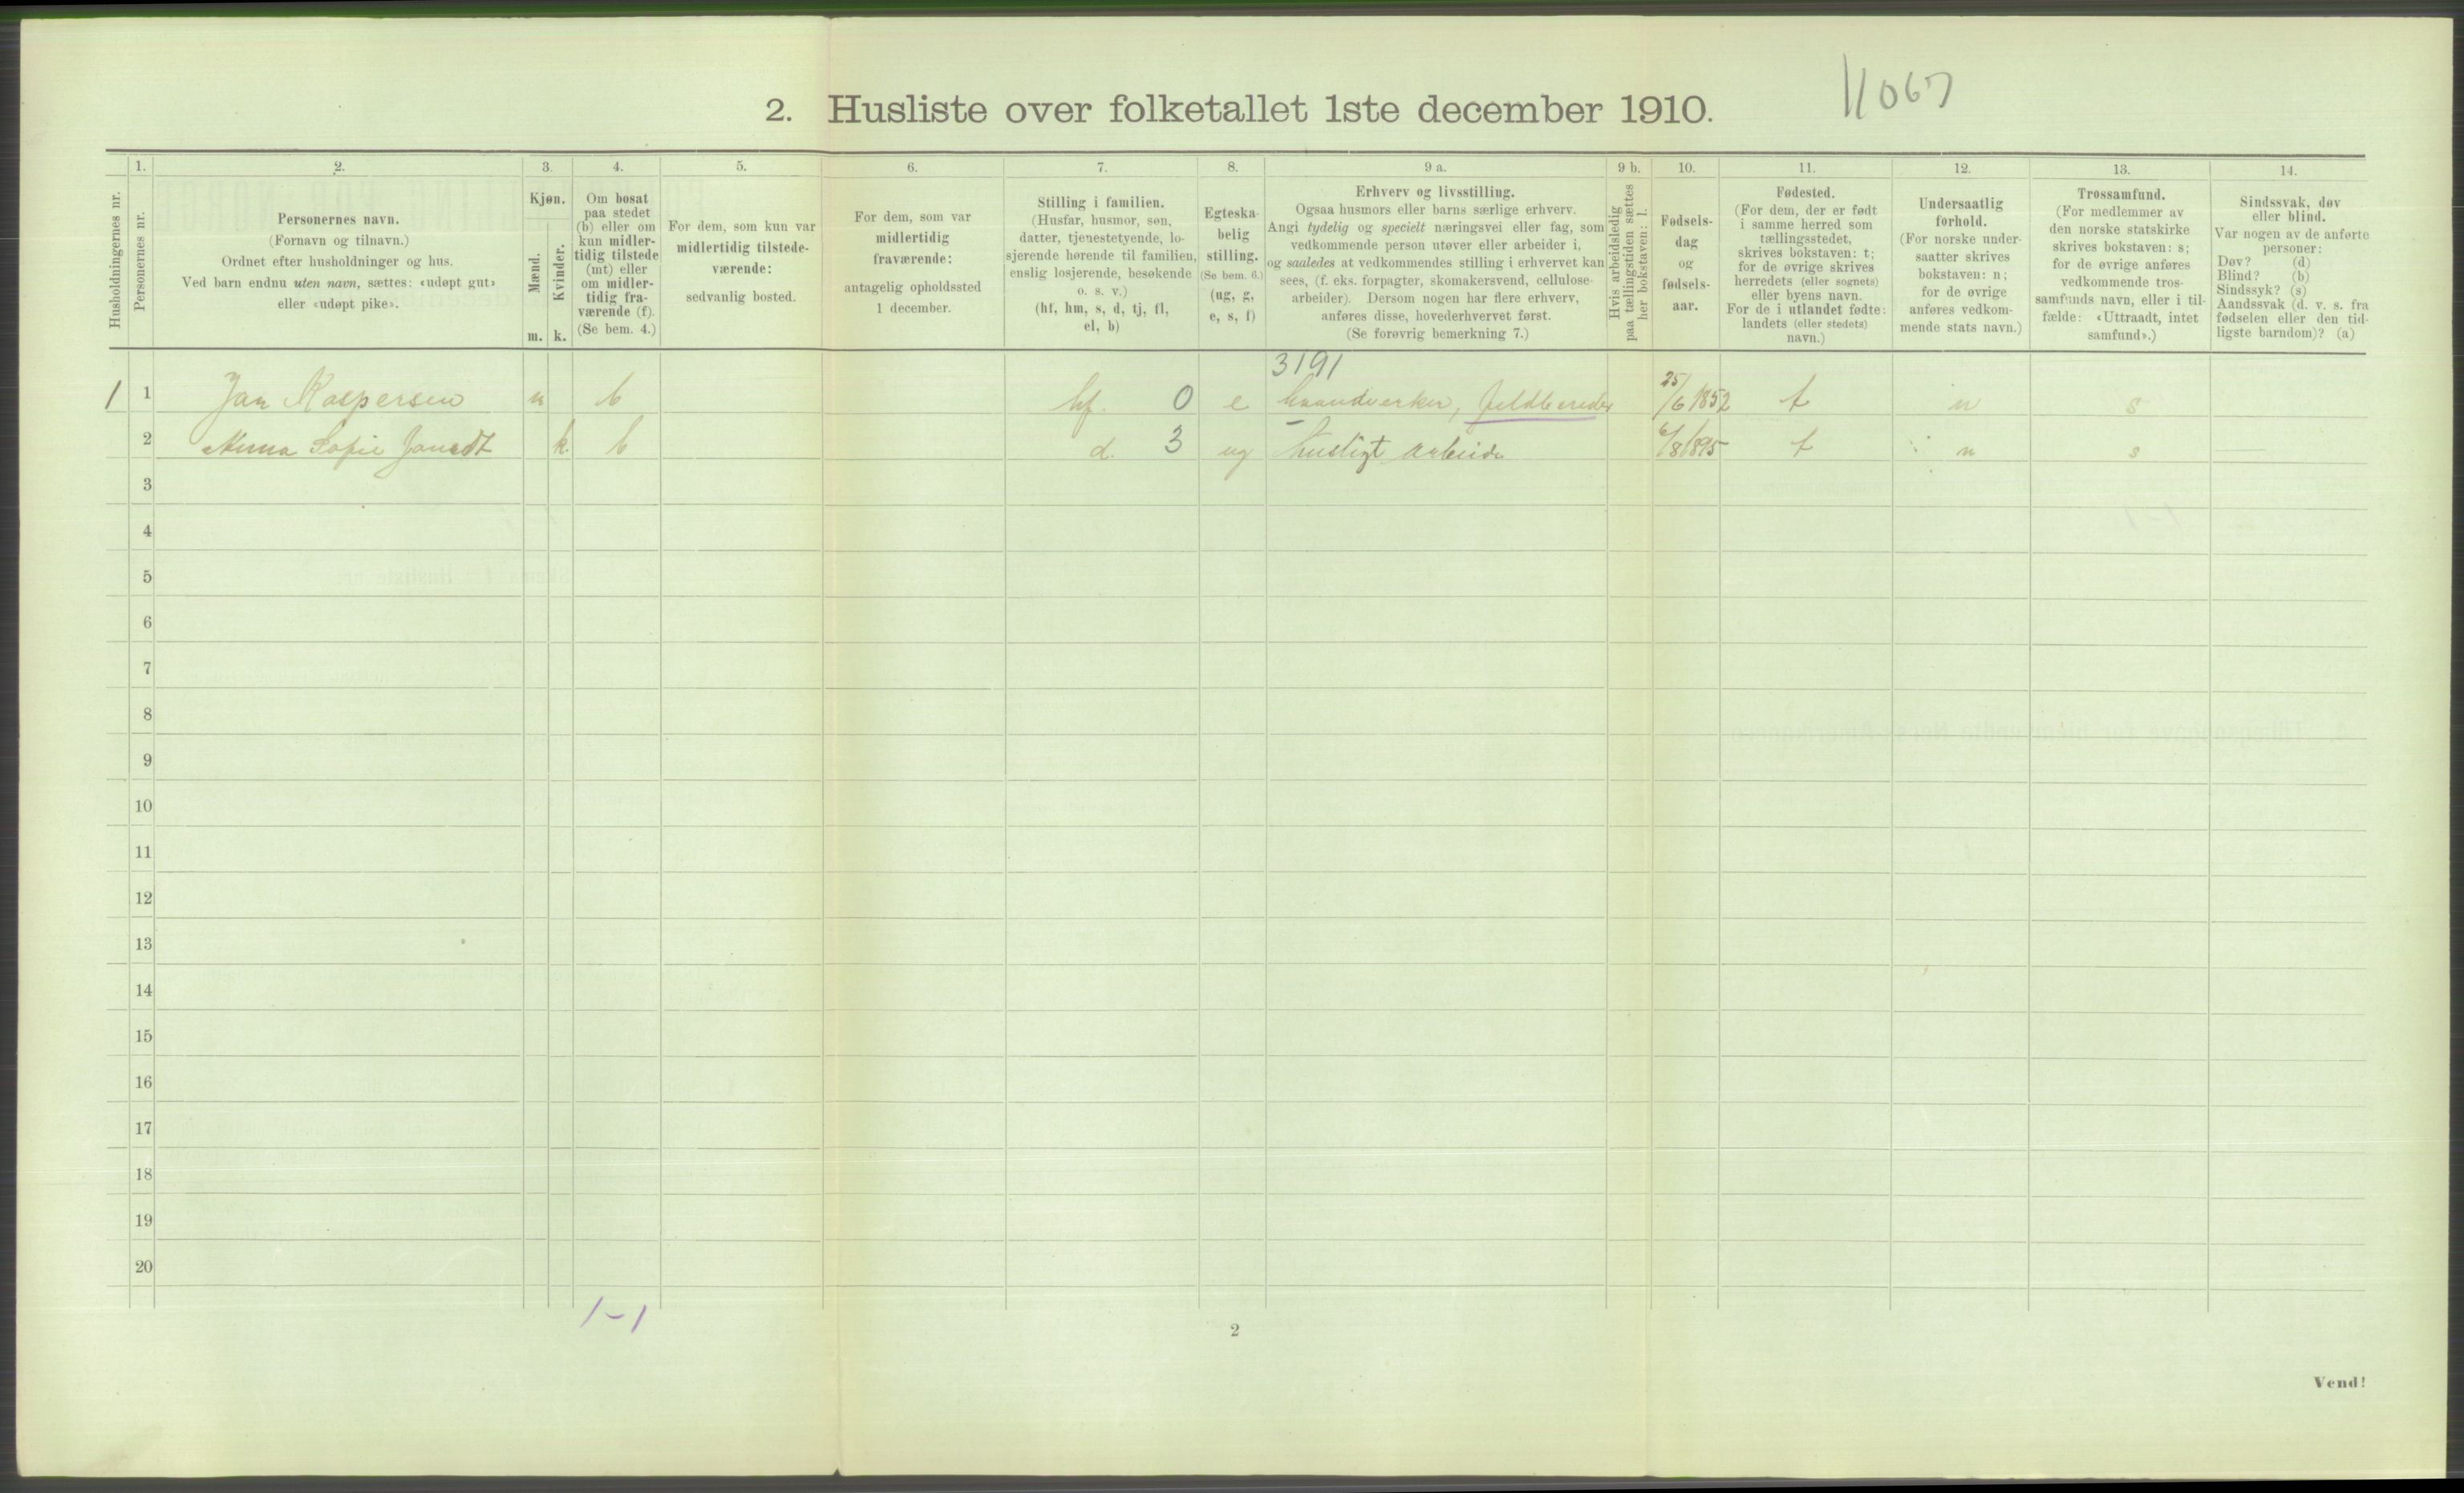 2. Husliste over folketallet 1ste december 1910.
11067
Husholdningernes nr.
1.
Personernes nr.
2.
Personernes navn.
(Fornavn og tilnavn.)
Ordnet efter husholdninger og hus.
Ved barn endnu uten navn, sættes: «udøpt gut»
eller «udøpt pike».
3.
Kjøn.
Mænd.
Kvinder.
m. k.
4.
Om bosat
paa stedet
(b) eller om
kun midler-
tidig tilstede
(mt) eller
om midler-
tidig fra-
værende (f).
(Se bem. 4.)
5.
For dem, som kun var
midlertidig tilstede-
værende:
sedvanlig bosted.
6.
For dem, som var
midlertidig
fraværende:
antagelig opholdssted
1 december.
7.
Stilling i familien.
(Husfar, husmor, søn,
datter, tjenestetyende, lo-
sjerende hørende til familien,
enslig losjerende, besøkende
o. s. v.)
(hf, hm, s, d, tj, fl,
el, b)
8.
Egteska-
belig
stilling.
(Se bem. 6.)
(ug, g,
e, s, f)
9 a.
Erhverv og livsstilling.
Ogsaa husmors eller barns særlige erhverv.
Angi tydelig og specielt næringsvei eller fag, som
vedkommende person utøver eller arbeider i,
og saaledes at vedkommendes stilling i erhvervet kan
sees, (f. eks. forpagter, skomakersvend, cellulose-
arbeider). Dersom nogen har flere erhverv,
anføres disse, hovederhvervet først.
(Se forøvrig bemerkning 7.)
9 b.
Hvis arbeidsledig
paa tællingstiden sættes
her bokstaven: l.
10.
Fødsels-
dag
og
fødsels-
aar.
11.
Fødested.
(For dem, der er født
i samme herred som
tællingsstedet,
skrives bokstaven: t;
for de øvrige skrives
herredets (eller sognets)
eller byens navn.
For de i utlandet fødte:
landets (eller stedets)
navn.)
12.
Undersaatlig
forhold.
(For norske under-
saatter skrives
bokstaven: n;
for de øvrige
anføres vedkom-
mende stats navn.)
13.
Trossamfund.
(For medlemmer av
den norske statskirke
skrives bokstaven: s;
for de øvrige anføres
vedkommende tros-
samfunds navn, eller i til-
fælde: «Uttraadt, intet
samfund».)
14.
Sindssvak, døv
eller blind.
Var nogen av de anførte
personer:
Døv? (d)
Blind? (b)
Sindssyk? (s)
Aandssvak (d. v. s. fra
fødselen eller den tid-
ligste barndom)? (a)
3191
1 1 Jan Kaspersen m b hf. 0 e haandverker, feldbereder 25/6 1852 t n s
2 Anna Sofie Jansdt k. b d. 3 ug husligt arbeide 6/8 1895 t n s
3
4
5
6
7
8
9
10
11
12
13
14
15
16
17
18
19
20
1-1
2
Vend!